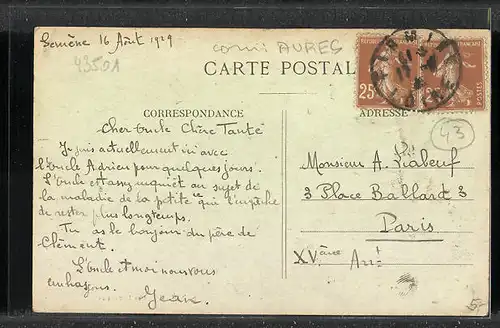 Semène 16 Août 1929
43501
comi AURES
CARTE POSTALE
25
POSTES
CORRESPONDANCE
ADRESSE
43
Cher Oncle Chère Tante
Je suis actuellement ici avec
l'Oncle Adrien pour quelques jours.
L'Oncle est assez inquiet au sujet de
la maladie de la petite ce qui l'empêche
de rester plus longtemps.
Tu as le bonjour du père de
Clément.
L'Oncle et moi nous vous
embrassons.
Jean
Monsieur A. Liabeuf
3 Place Ballard 3
Paris
XVème Arrt
5-